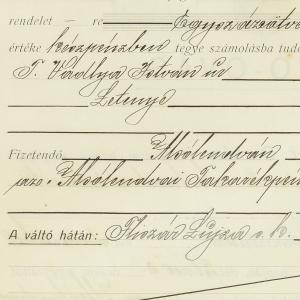 rendelet – re Egyszázöty
értéke készpénzben tegye számolásba tud
T. Vadlya István úr
Letenye
Fizetendő Alsólendván
az Alsólendvai Takarékpén
A váltó hátán: Tiszár Lujza s. k.